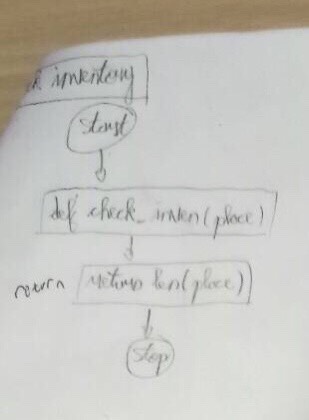 k inventory
Start
def check_inven(place)
return
return len(place)
Stop